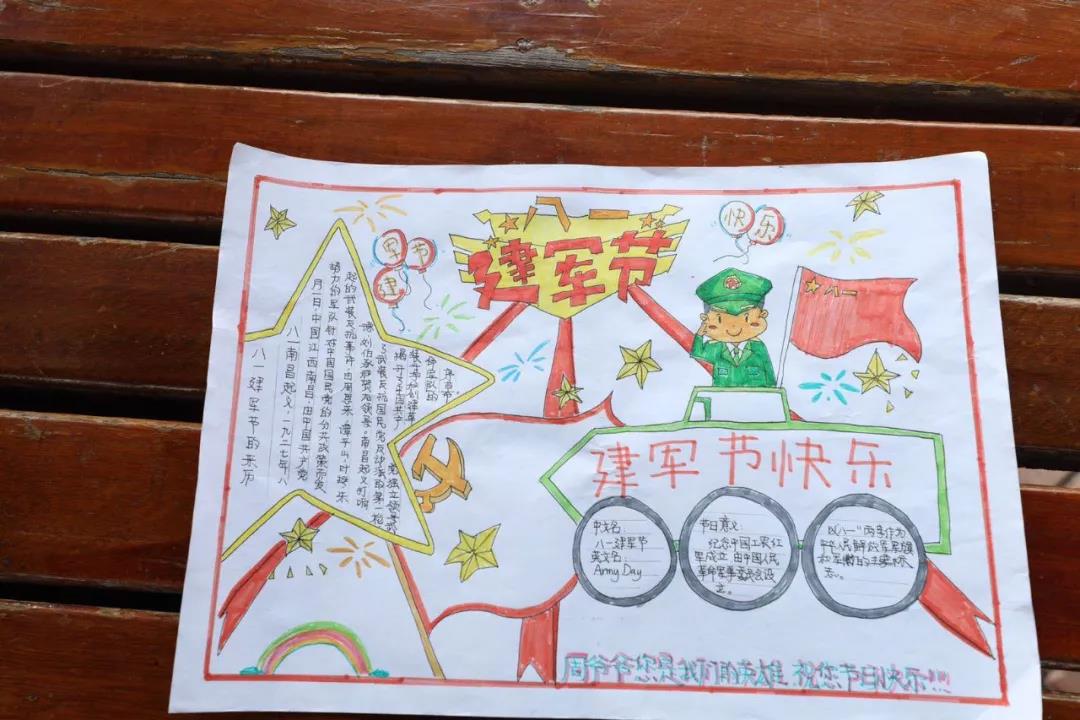 八一
建军节
快乐
军节
建
八一
八一建军节的来历
八一南昌起义，一九二七年八
月一日，中国江西南昌，由中国共产党
势力的军队针对中国国民党的分共政策而发
起的武装反抗事件，由周恩来、谭平山、叶挺、朱
德、刘伯承、贺龙领导。南昌起义打响
了武装反抗国民党反动派的第一枪
揭开了中国共产
党独立领导武
装斗争和创建革
命军队的
序幕。
建军节快乐
中文名：
八一建军节
英文名：
Army Day
节日意义：
纪念中国工农红
军成立 由中国人民
革命军事委员会设
立。
以八一"两字作为
中华人民解放军军旗
和军徽的主要标
志。
周爷爷您是我们的英雄 祝您节日快乐!!!